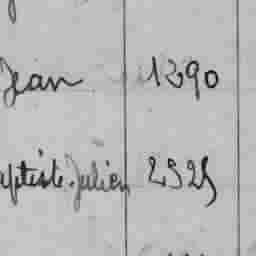 Jean 1290
aptiste Julien 2525